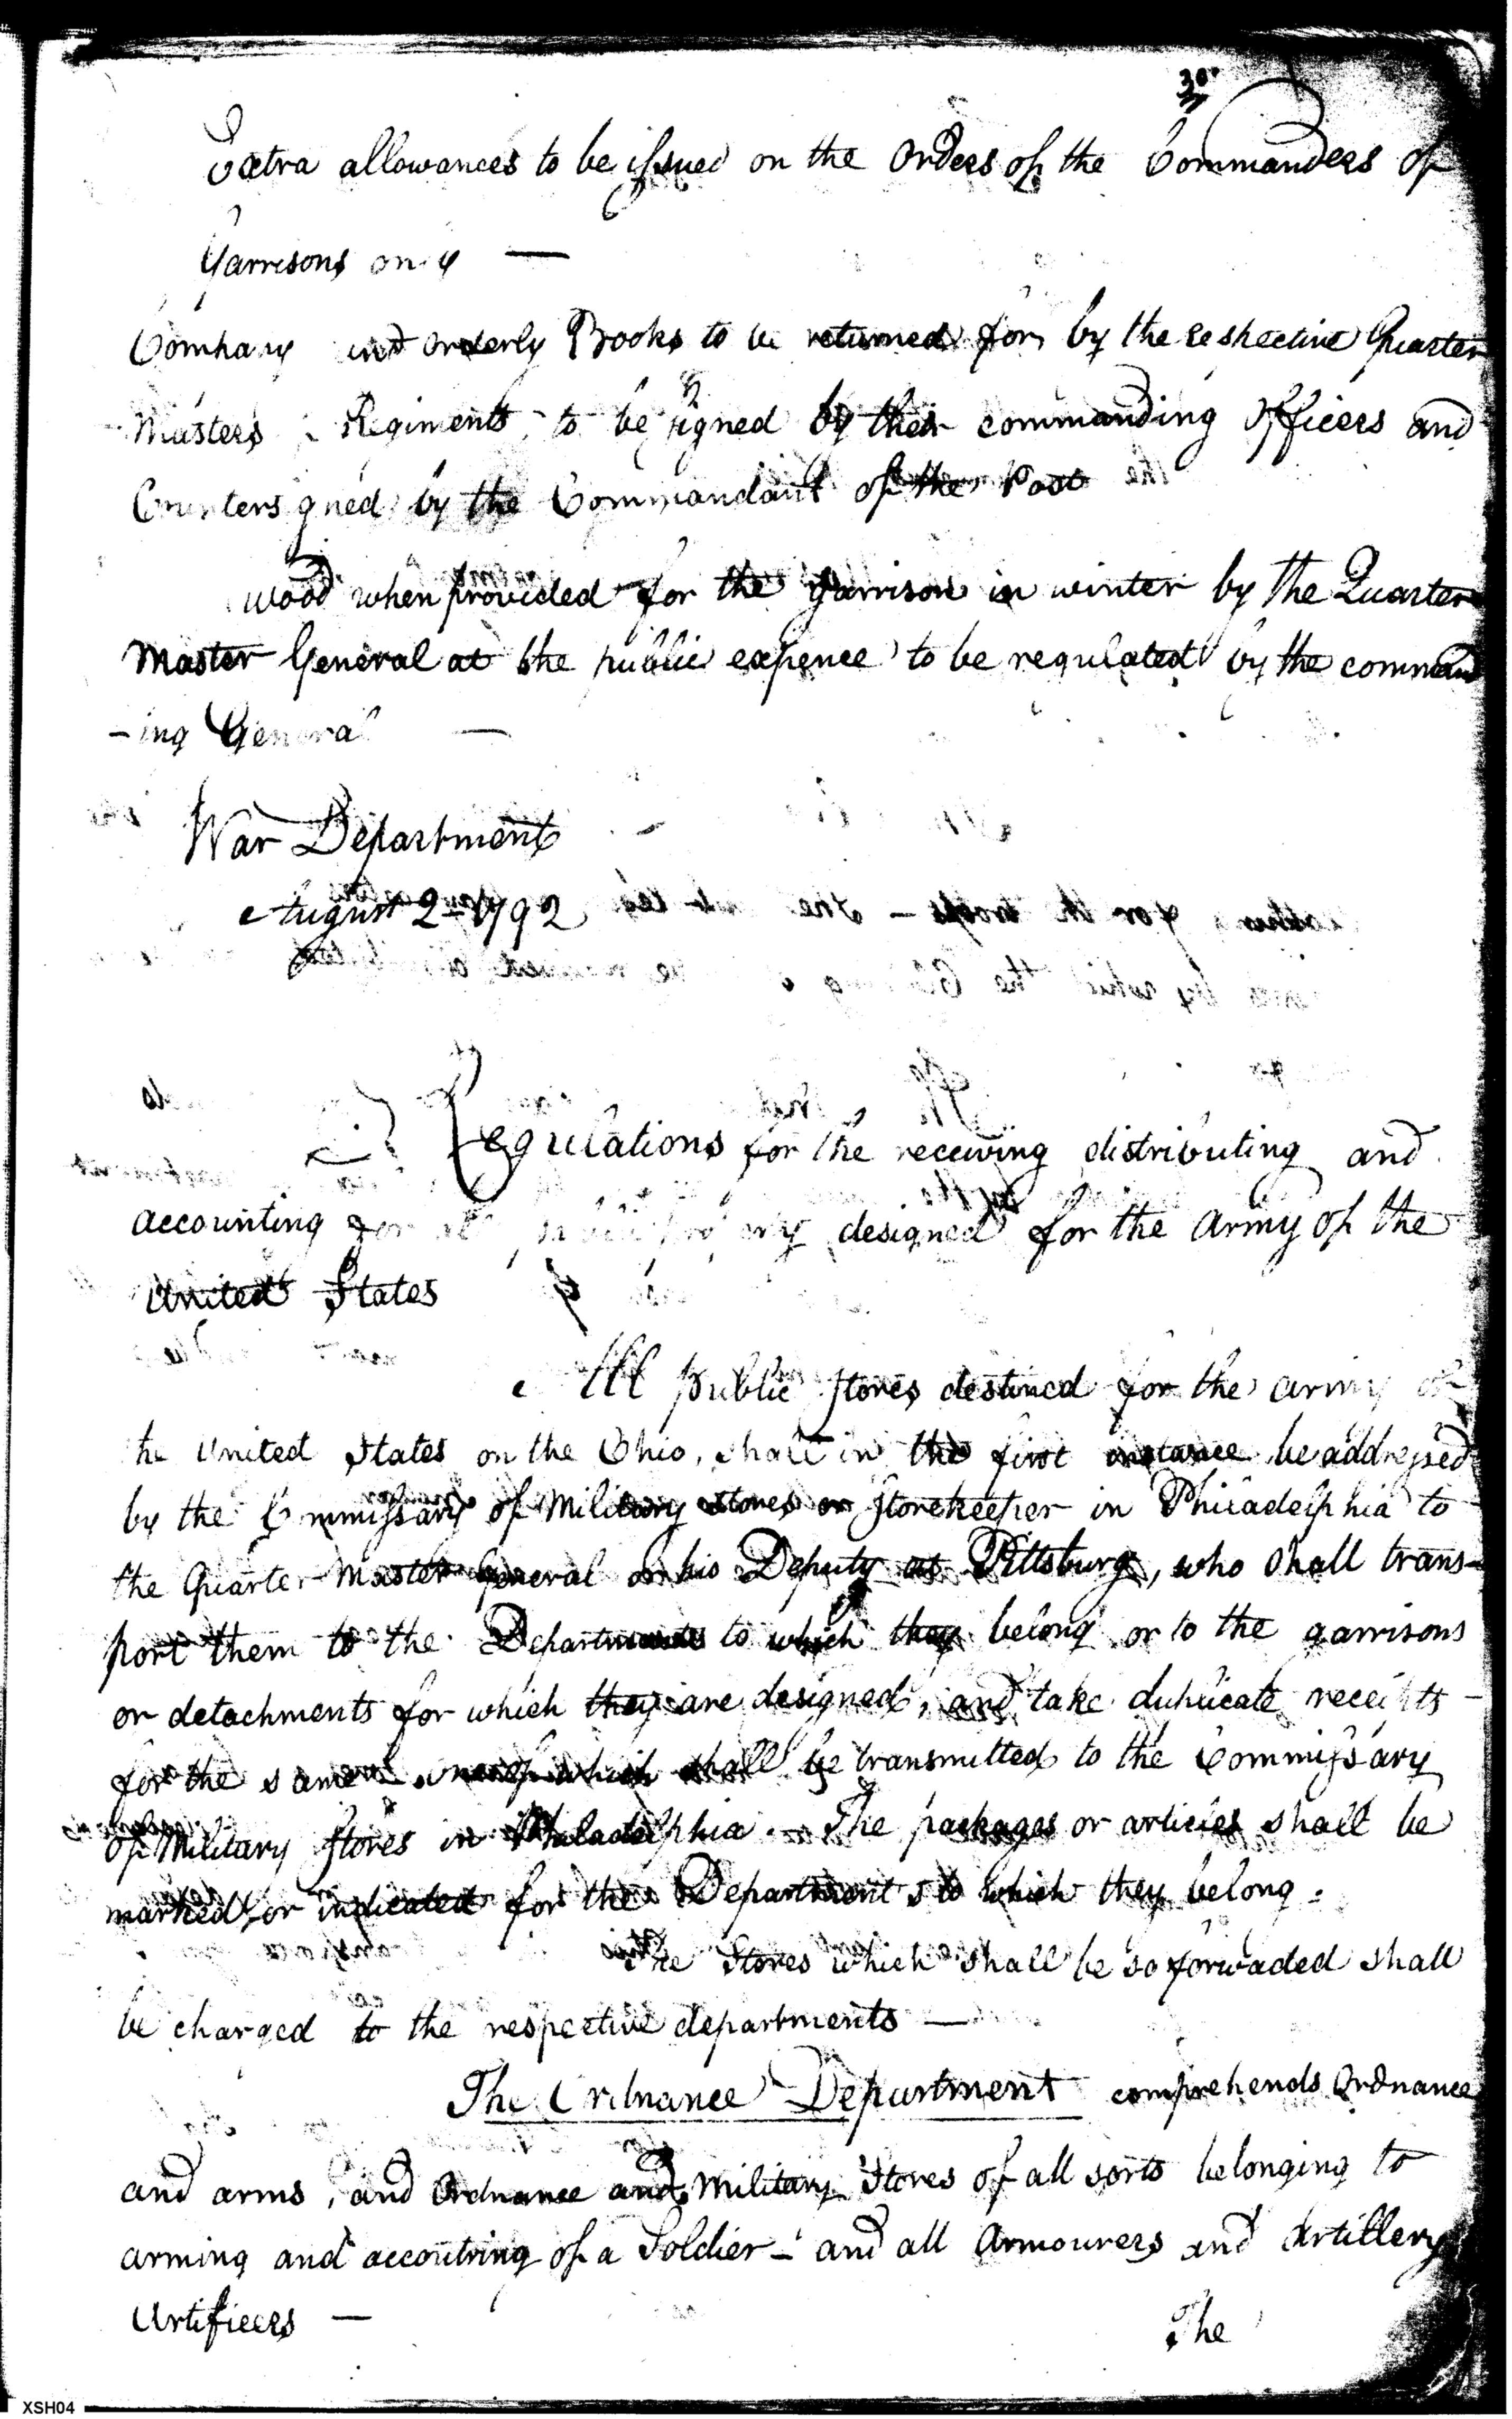 Extra allowances to be issued on the Orders of the Commanders of
Garrisons only —
Company and Orderly Books to be returned for by the respective Quarter
Masters Regiments to be signed by their commanding Officers and
Countersigned by the Commandant of the Post
wood when provided for the Garrison in winter by the Quarter
Master General at the public expence to be regulated by the command
-ing General —
War Department
August 2d 1792
Regulations for the receiving distributing and
accounting for all public property designed for the Army of the
United States
All public Stores destined for the army of
the United States on the Ohio, shall in the first instance be addressed
by the Commissary of Military Stores or Storekeeper in Philadelphia to
the Quarter Master General or his Deputy at Pittsburg, who shall trans-
port them to the Departments to which they belong or to the garrisons
or detachments for which they are designed, and take duplicate receipts -
for the same one of which shall be transmitted to the Commissary
of Military Stores in Philadelphia. - The packages or articles shall be
marked or indicated for the Departments to which they belong.
The Stores which shall be so forwaded shall
be charged to the respective departments —
The Ordnance Department comprehends Ordnance
and arms, and Ordnance and Military Stores of all sorts belonging to
arming and accoutring of a Soldier - and all Armourers and Artillery
Artificers —
The
XSH04